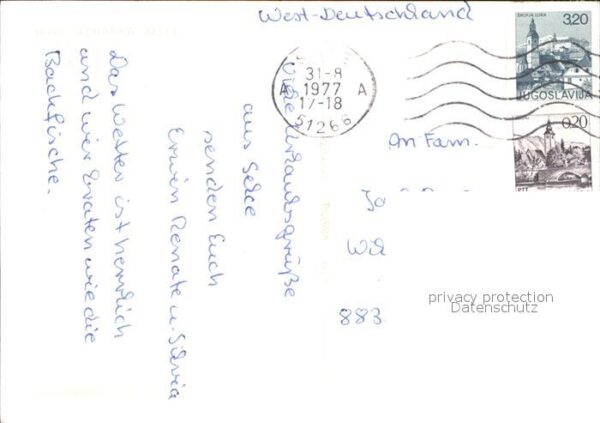 West-Deutschland
ŠKOFJA LOKA
3,20
JUGOSLAVIJA
0,20
PTT
31-8
A 1977 A
17-18
51266
An Fam.
Jo
Wil
883
privacy protection
Datenschutz
Viele Urlaubsgrüße
aus Selce
senden Euch
Erwin Renate u. Silvia
Das Wetter ist herrlich
und wir braten wie die
Backfische.